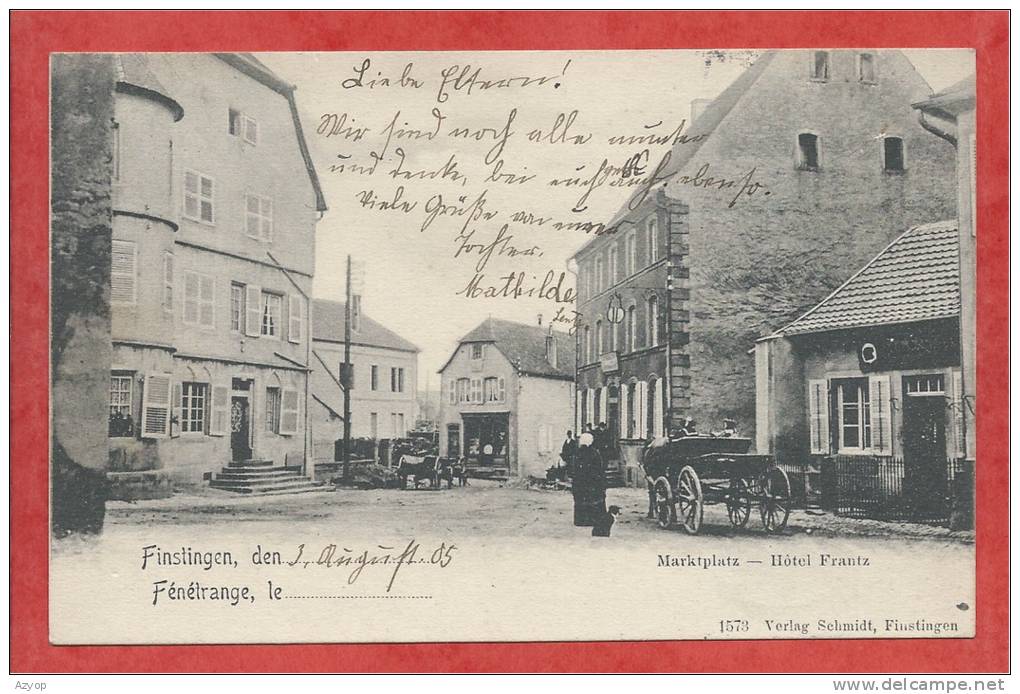 Liebe Eltern!
Wir sind noch alle munter
und denke, bei euch auch ebenso.
Viele Grüße von eurer
Tochter.
Mathilde
Finstingen, den 3. August 05
Fénétrange, le
Marktplatz — Hôtel Frantz
1573 Verlag Schmidt, Finstingen
Azyop
www.delcampe.net